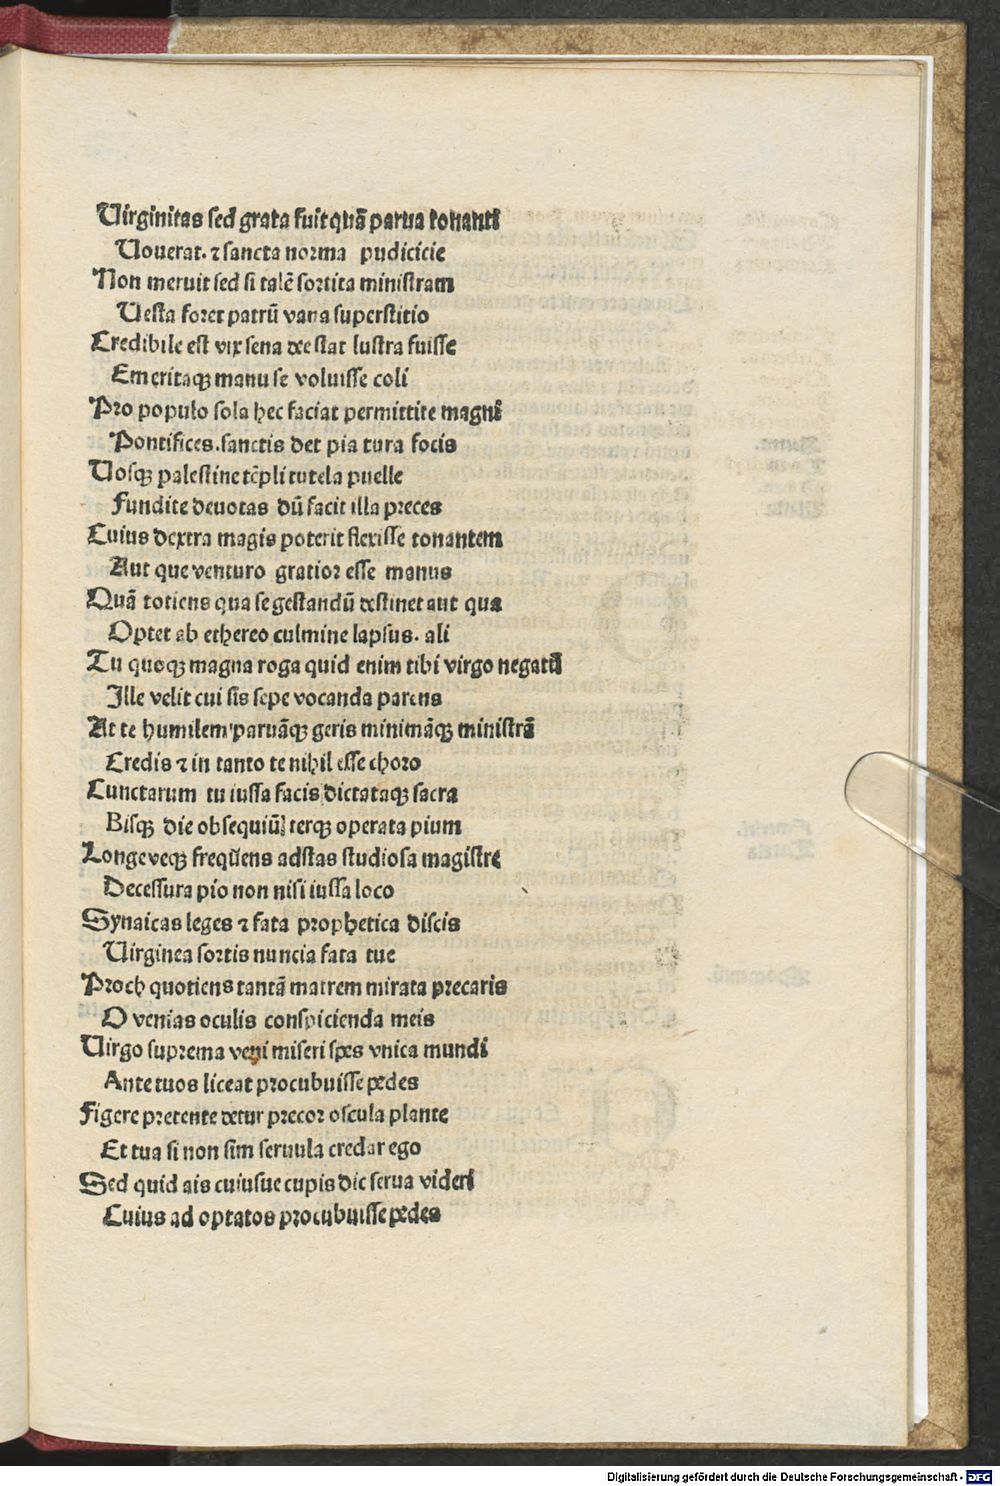 Virginitas sed grata fuit quā parua tonanti
Vouerat. ⁊ sancta norma pudicicie
Non meruit sed si talē sortita ministram
Uesta foret patrū vana superstitio
Credibile est vix sena deestat lustra fuisse
Emeritaqꝫ manu se voluisse coli
Pro populo sola hec faciat permittite magni
Pontifices. sanctis det pia tura focis
Vosqꝫ palestine tēpli tutela puelle
Fundite deuotas dū facit illa preces
Cuius dextra magis poterit flexisse tonantem
Aut que venturo gratior esse manus
Quā totiens qua se gestandū destinet aut qua
Optet ab ethereo culmine lapsus. ali
Tu quoqꝫ magna roga quid enim tibi virgo negatū
Ille velit cui sis sepe vocanda parens
At te humilem paruāqꝫ geris minimāqꝫ ministrā
Credis ⁊ in tanto te nihil esse choro
Cunctarum tu iussa facis dictataqꝫ sacra
Bisqꝫ die obsequiū terqꝫ operata pium
Longeveqꝫ frequēns adstas studiosa magistre
Decessura pio non nisi iussa loco
Synaicas leges ⁊ fata prophetica discis
Virginea sortis nuncia fata tue
Proch quotiens tantā matrem mirata precaris
O venias oculis conspicienda meis
Virgo suprema veni miseri spes vnica mundi
Ante tuos liceat procubuisse pedes
Figere pretente detur precor oscula plante
Et tua si non sim seruula credar ego
Sed quid ais cuiusue cupis dic serua videri
Cuius ad optatos procubuisse pedes
Digitalisierung gefördert durch die Deutsche Forschungsgemeinschaft - DFG